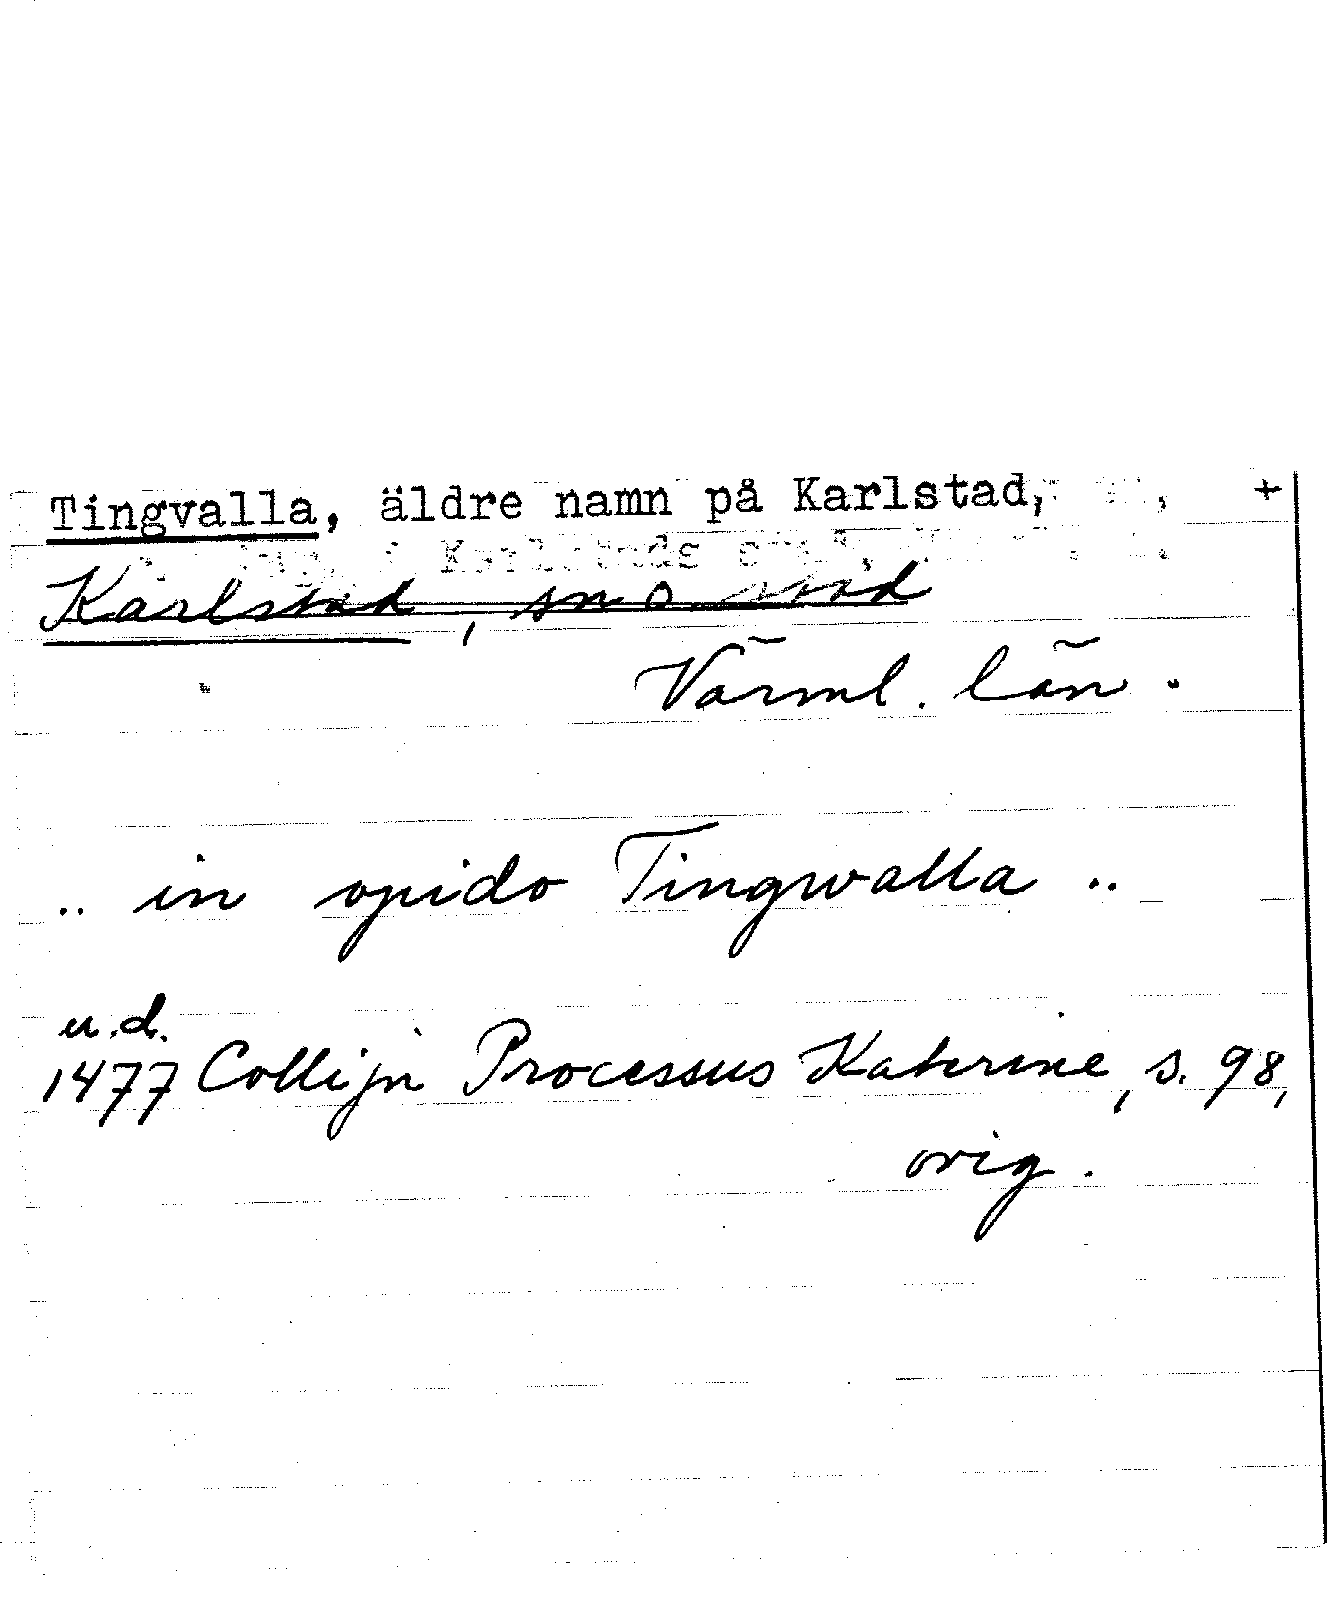 Tingvalla, äldre namn på Karlstad, +
Karlstad, sn o. stad
Värml. län.
.. in opido Tingwalla ..
u.d.
1477 Collijn Processus Katerine, s. 98,
orig.